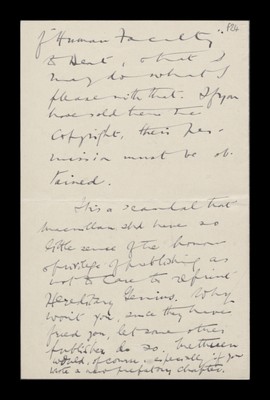 of "Human Faculty"
to Dent, & that I
may do what I
please with that. If you
have sold them the
Copyright, their per-
mission must be ob-
tained.
It is a scandal that
Macmillan shd have so
little sense of the honour
& privilege of publishing as
not to care to reprint
Hereditary Genius. Why
won't you, since they have
freed you, let some other
publisher do so. Methuen
would, of course – especially, if you
wrote a new prefatory chapter.